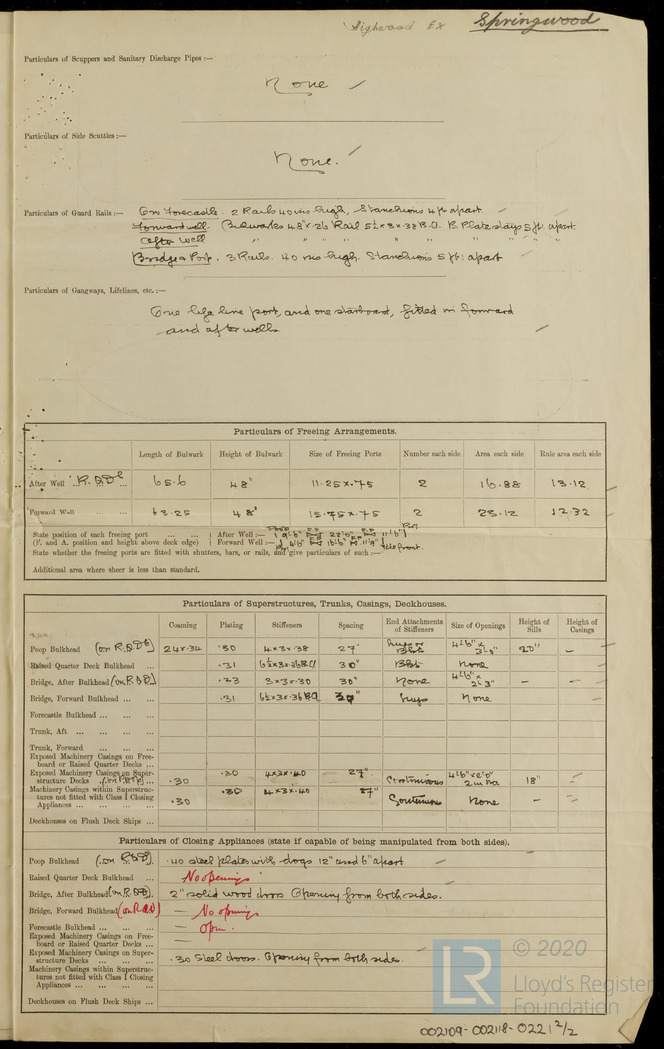 Highwood Ex Springwood
Particulars of Scuppers and Sanitary Discharge Pipes :—
None
Particulars of Side Scuttles :—
None.
Particulars of Guard Rails :— On Forecastle. 2 Rails 40 ins high, Stanchions 4 ft apart.
Forward well. Bulwarks 48" x .26 Rail 5½ x 3 x .38 B.A. B. Plate stays 5 ft: apart.
After well " " " " " "
Bridge & Poop. 3 Rails. 40 ins high. Stanchions 5 ft: apart
Particulars of Gangways, Lifelines, etc. :—
One life line port, and one starboard, fitted in forward
and after wells.
Particulars of Freeing Arrangements.
Length of Bulwark Height of Bulwark Size of Freeing Ports Number each side Area each side Rule area each side
After Well ... R.Q.Dk 65.6 48" 11.25 x .75 2 16.88 13.12
Forward Well 63.25 48" 15.75 x .75 2 23.12 12.32
State position of each freeing port ... ... After Well :—
(F. and A. position and height above deck edge) Forward Well :—
State whether the freeing ports are fitted with shutters, bars, or rails, and give particulars of such :—
Additional area where sheer is less than standard.
Particulars of Superstructures, Trunks, Casings, Deckhouses.
Coaming Plating Stiffeners Spacing End Attachments of Stiffeners Size of Openings Height of Sills Height of Casings
Poop Bulkhead (on R.Q.Dk) 24 x .34 .30 4 x 3 x .38 27" 20" —
Raised Quarter Deck Bulkhead ... .31 6½ x 3 x .36 B.A 30" Bkt None
Bridge, After Bulkhead (on R.Q.D.) .33 3 x 3 x .30 30" None — —
Bridge, Forward Bulkhead ... ... .31 6½ x 3 x .36 B.A 30" Lugs None
Forecastle Bulkhead ... ... ...
Trunk, Aft ... ... ... ...
Trunk, Forward ... ... ...
Exposed Machinery Casings on Free-
board or Raised Quarter Decks ...
Exposed Machinery Casings on Super-
structure Decks .30 .30 4 x 3 x .40 27" Continuous 18"
Machinery Casings within Superstruc-
tures not fitted with Class 1 Closing
Appliances ... ... ... ... .30 .30 4 x 3 x .40 27" Continuous None —
Deckhouses on Flush Deck Ships ...
Particulars of Closing Appliances (state if capable of being manipulated from both sides).
Poop Bulkhead (on R.Q.D.) .40 steel plates with dogs 12" and 6" apart
Raised Quarter Deck Bulkhead ... No openings
Bridge, After Bulkhead (on R.Q.D.) 2" solid wood doors Opening from both sides.
Bridge, Forward Bulkhead (on R.Q.D) — No openings
Forecastle Bulkhead ... ... ... — Open.
Exposed Machinery Casings on Free-
board or Raised Quarter Decks ... —
Exposed Machinery Casings on Super-
structure Decks ... ... ... .30 Steel doors. Opening from both sides.
Machinery Casings within Superstruc-
tures not fitted with Class 1 Closing
Appliances ... ... ... ...
Deckhouses on Flush Deck Ships ...
LR
© 2020
Lloyd's Register
Foundation
002109-002118-0221 2/2